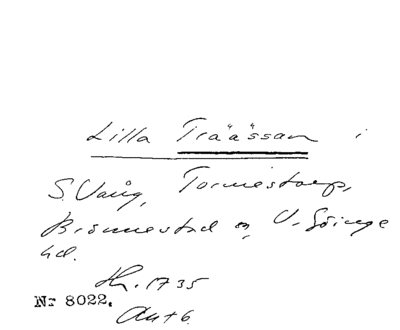 Lilla Träässan i
S. Vång, Tormestorp,
Brönnestad o, V. Göinge
hd.
Hl. 1735
Nr 8022.
Ant 6